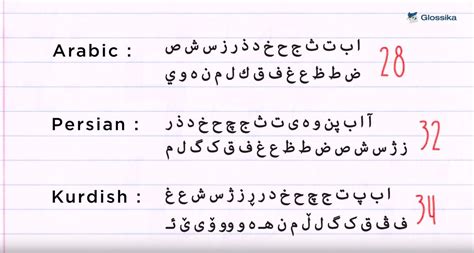 Glossika
Arabic : ا ب ت ث ج ح خ د ذ ر ز س ش ص 28
ض ط ظ ع غ ف ق ك ل م ن ه و ي
Persian : آ ا ب پ ن و ه ی ت ث ج چ ح خ د ذ ر 32
ز ژ س ش ص ض ط ظ ع غ ف ق ک گ ل م
Kurdish : ا ب پ ت ج چ ح خ د ر ڕ ز ژ س ش ع غ 34
ف ڤ ق ک گ ل ڵ م ن هـ ە و وو ۆ ی ێ ئـ